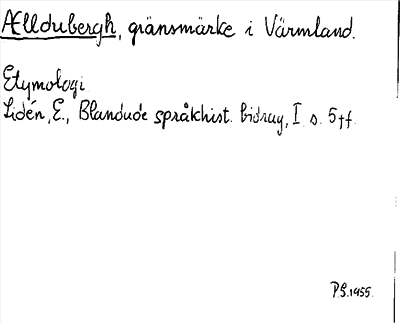 Ælldubergh, gränsmärke i Värmland.
Etymologi
Lidén, E., Blandade språkhist. bidrag, I s. 5 ff.
P.S. 1955.